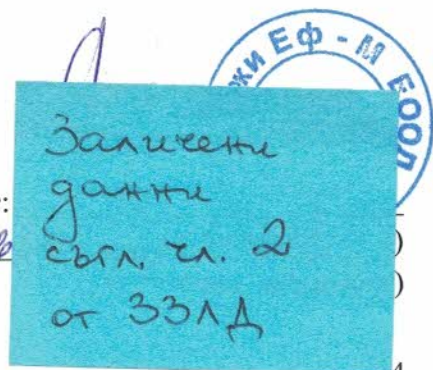 ки ЕФ - М ЕООД
Заличени
данни
съгл. чл. 2
от ЗЗЛД